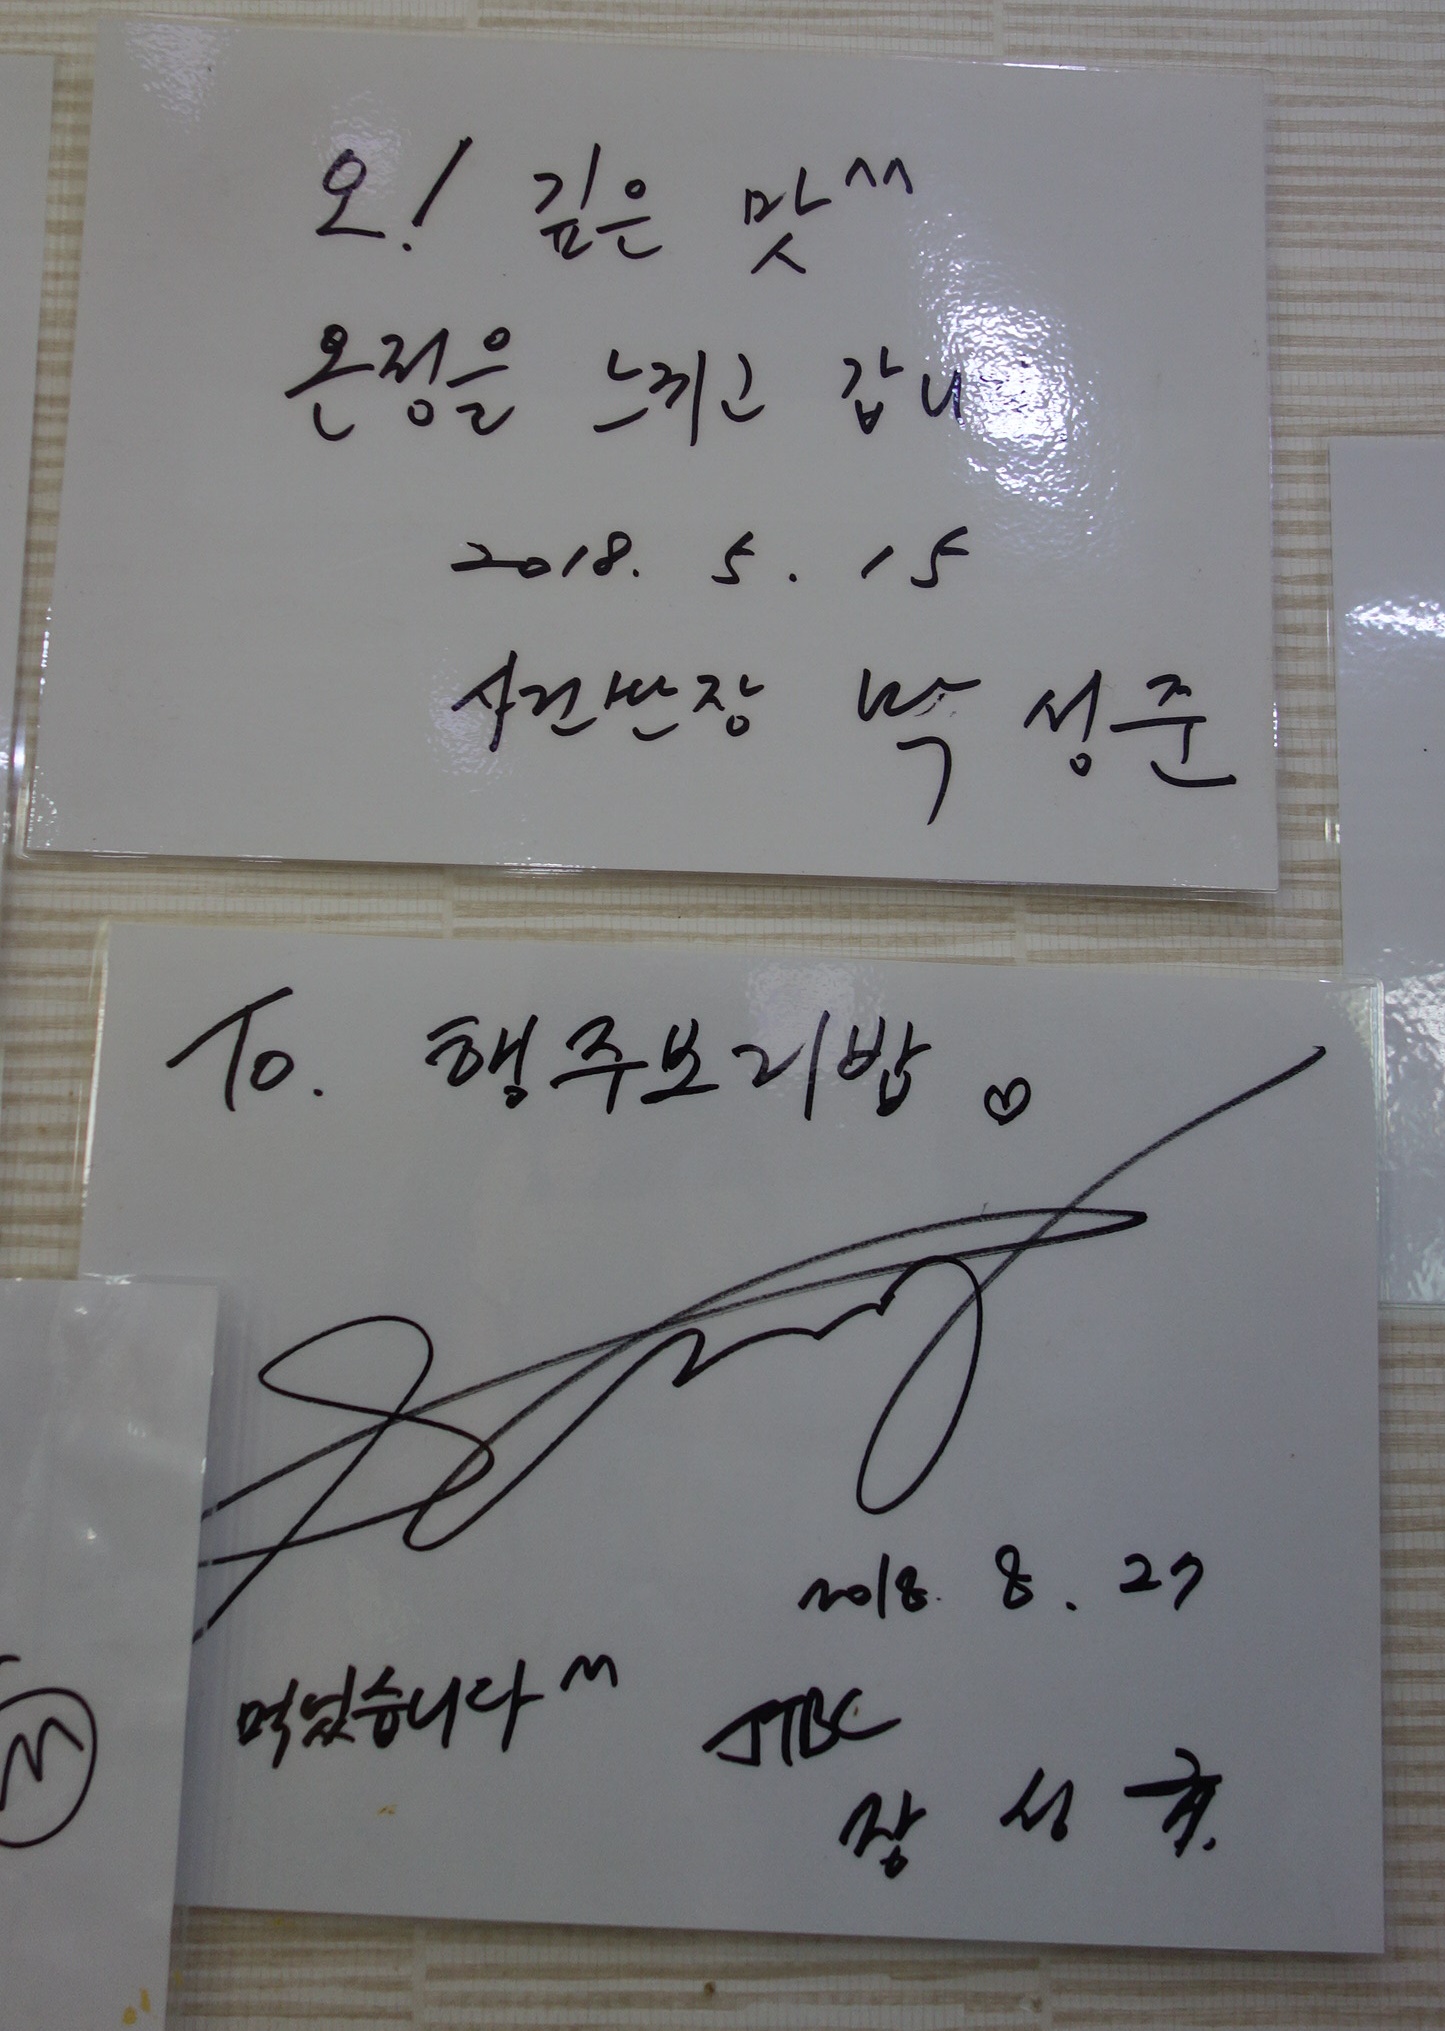 오! 깊은 맛^^
온정을 느끼고 갑니
2018. 5. 15
사건반장 박성준
To. 행주보리밥 ♡
2018. 8. 27
먹었습니다 ^^
JTBC
장성규.